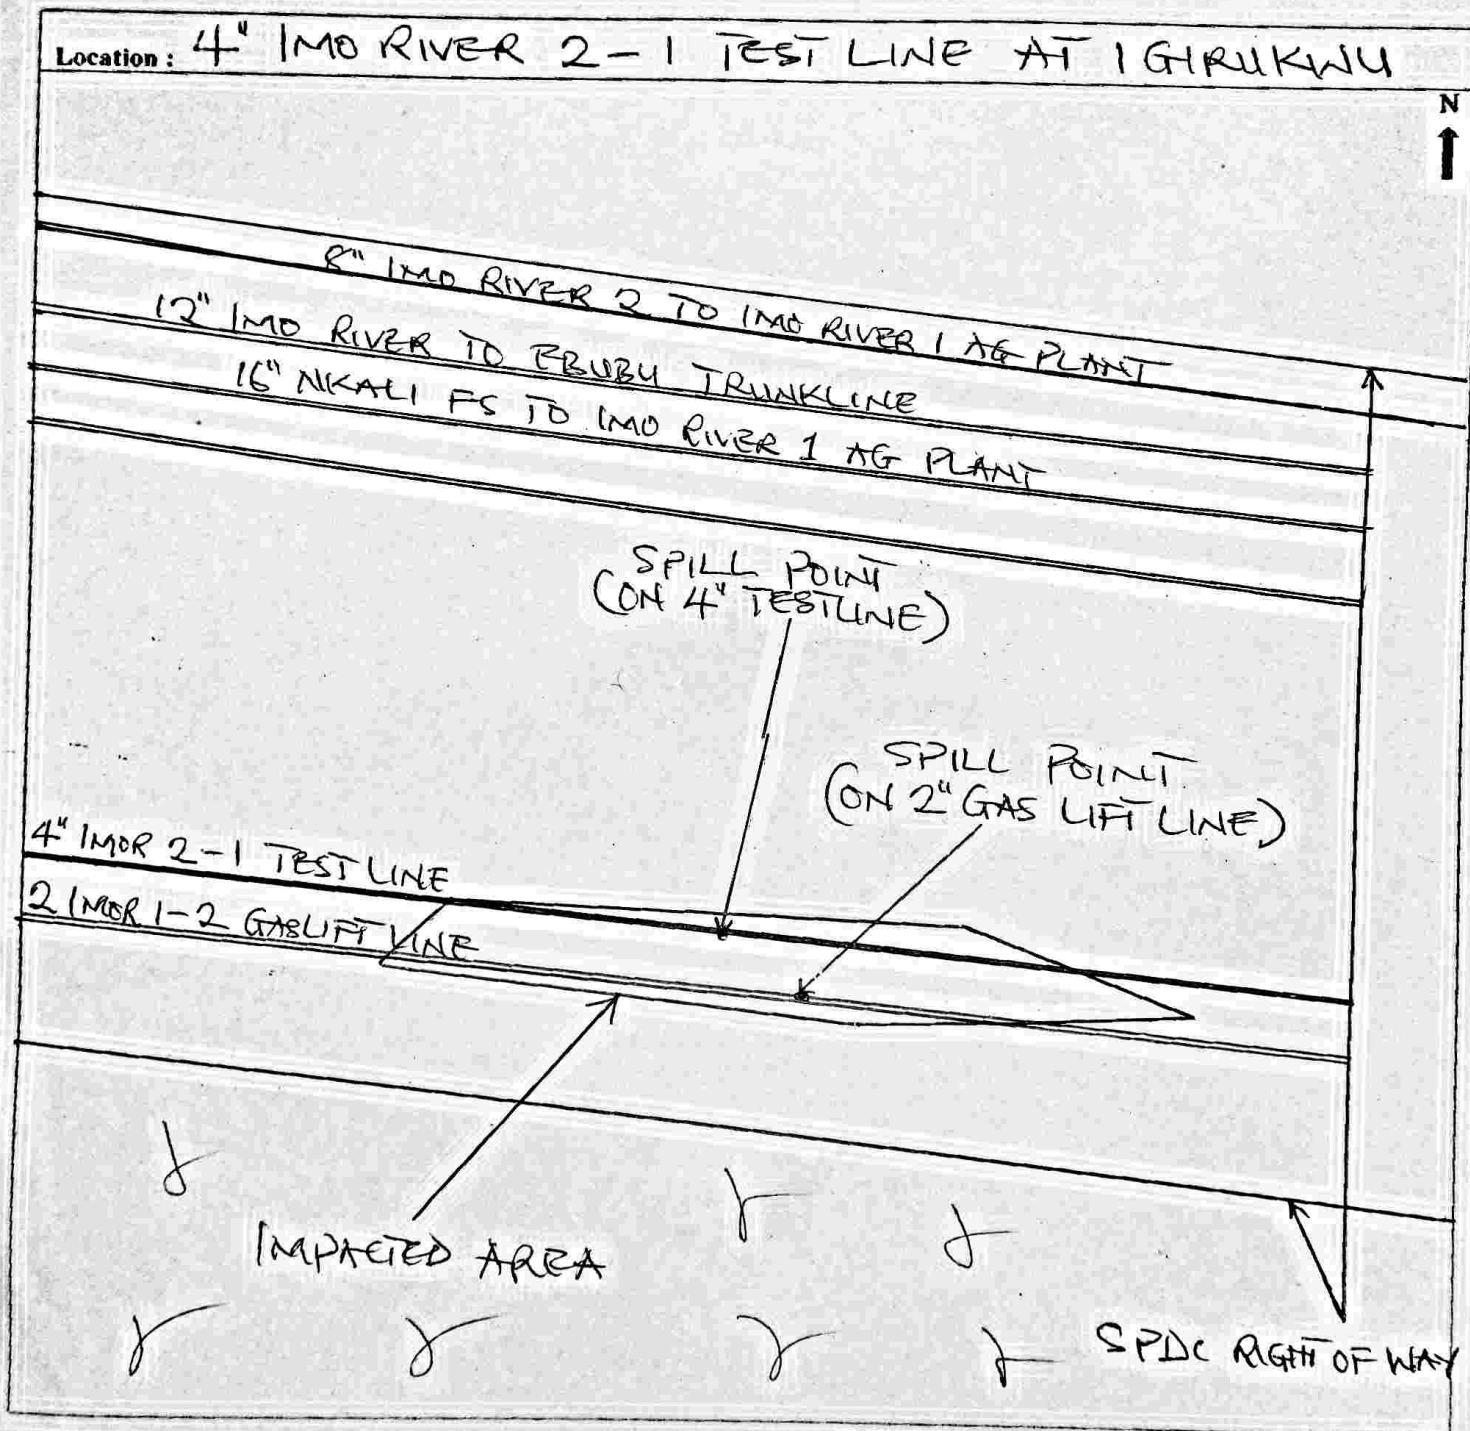 Location: 4" IMO RIVER 2-1 TEST LINE AT IGIRUKWU
N
8" IMO RIVER 2 TO IMO RIVER 1 AG PLANT
12" IMO RIVER TO EBUBU TRUNKLINE
16" NKALI FS TO IMO RIVER 1 AG PLANT
SPILL POINT
(ON 4" TESTLINE)
SPILL POINT
(ON 2" GAS LIFT LINE)
4" IMOR 2-1 TEST LINE
2 IMOR 1-2 GASLIFT LINE
IMPACTED AREA
SPDC RIGHT OF WAY